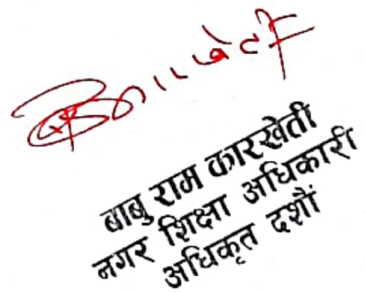 बाबु राम कारखेती
नगर शिक्षा अधिकारी
अधिकृत दशौं